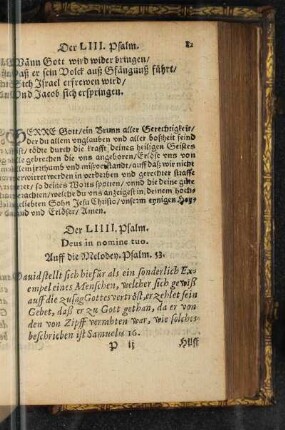 Der LIII. Psalm. 82
Wann Gott wird wider bringen/
Daß er sein Volck auß Gfängnuß führt/
sich Israel erfrewen wird/
Und Jacob sich erspringen.
HERRE Gott/ein Brunn aller Gerechtigkeit/
der du allem unglauben und aller boßheit feind
bist/ tödte durch die krafft deines heiligen Geistes
alle gebrechen die uns angeboren/ Erlöse uns von
allem irrthumb und mißverstandt/ auff daß wir nicht
verwirret werden in verderben und gerechter straffe
so deines Worts spotten/ unnd die deine güte
verachten/ welche du uns anzeigest in deinem hochgeliebten
Sohn Jesu Christo/ unserm eynigen Heyland
und Erlöser/ Amen.
Der LIIII. Psalm.
Deus in nomine tuo.
Auff die Melodey. Psalm. 53.
David stellt sich hiefür als ein sonderlich Exempel
eines Menschen, welcher sich gewiß
auff die zusag Gottes vertröst, erzehlet sein
Gebet, daß er zu Gott gethan, da er von
den von Zipff verrahten war, wie solches
beschrieben ist Samuelis 16.
P ij Hilff